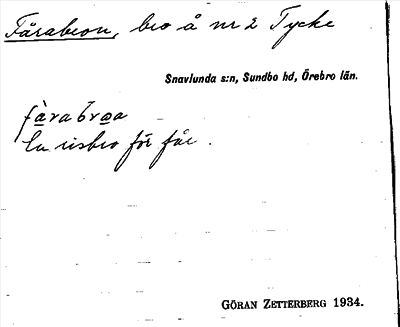 Fårabron, bro å nr 2 Tycke
Snavlunda s:n, Sundbo hd, Örebro län.
fàrabròa
En risbro för får.
GÖRAN ZETTERBERG 1934.